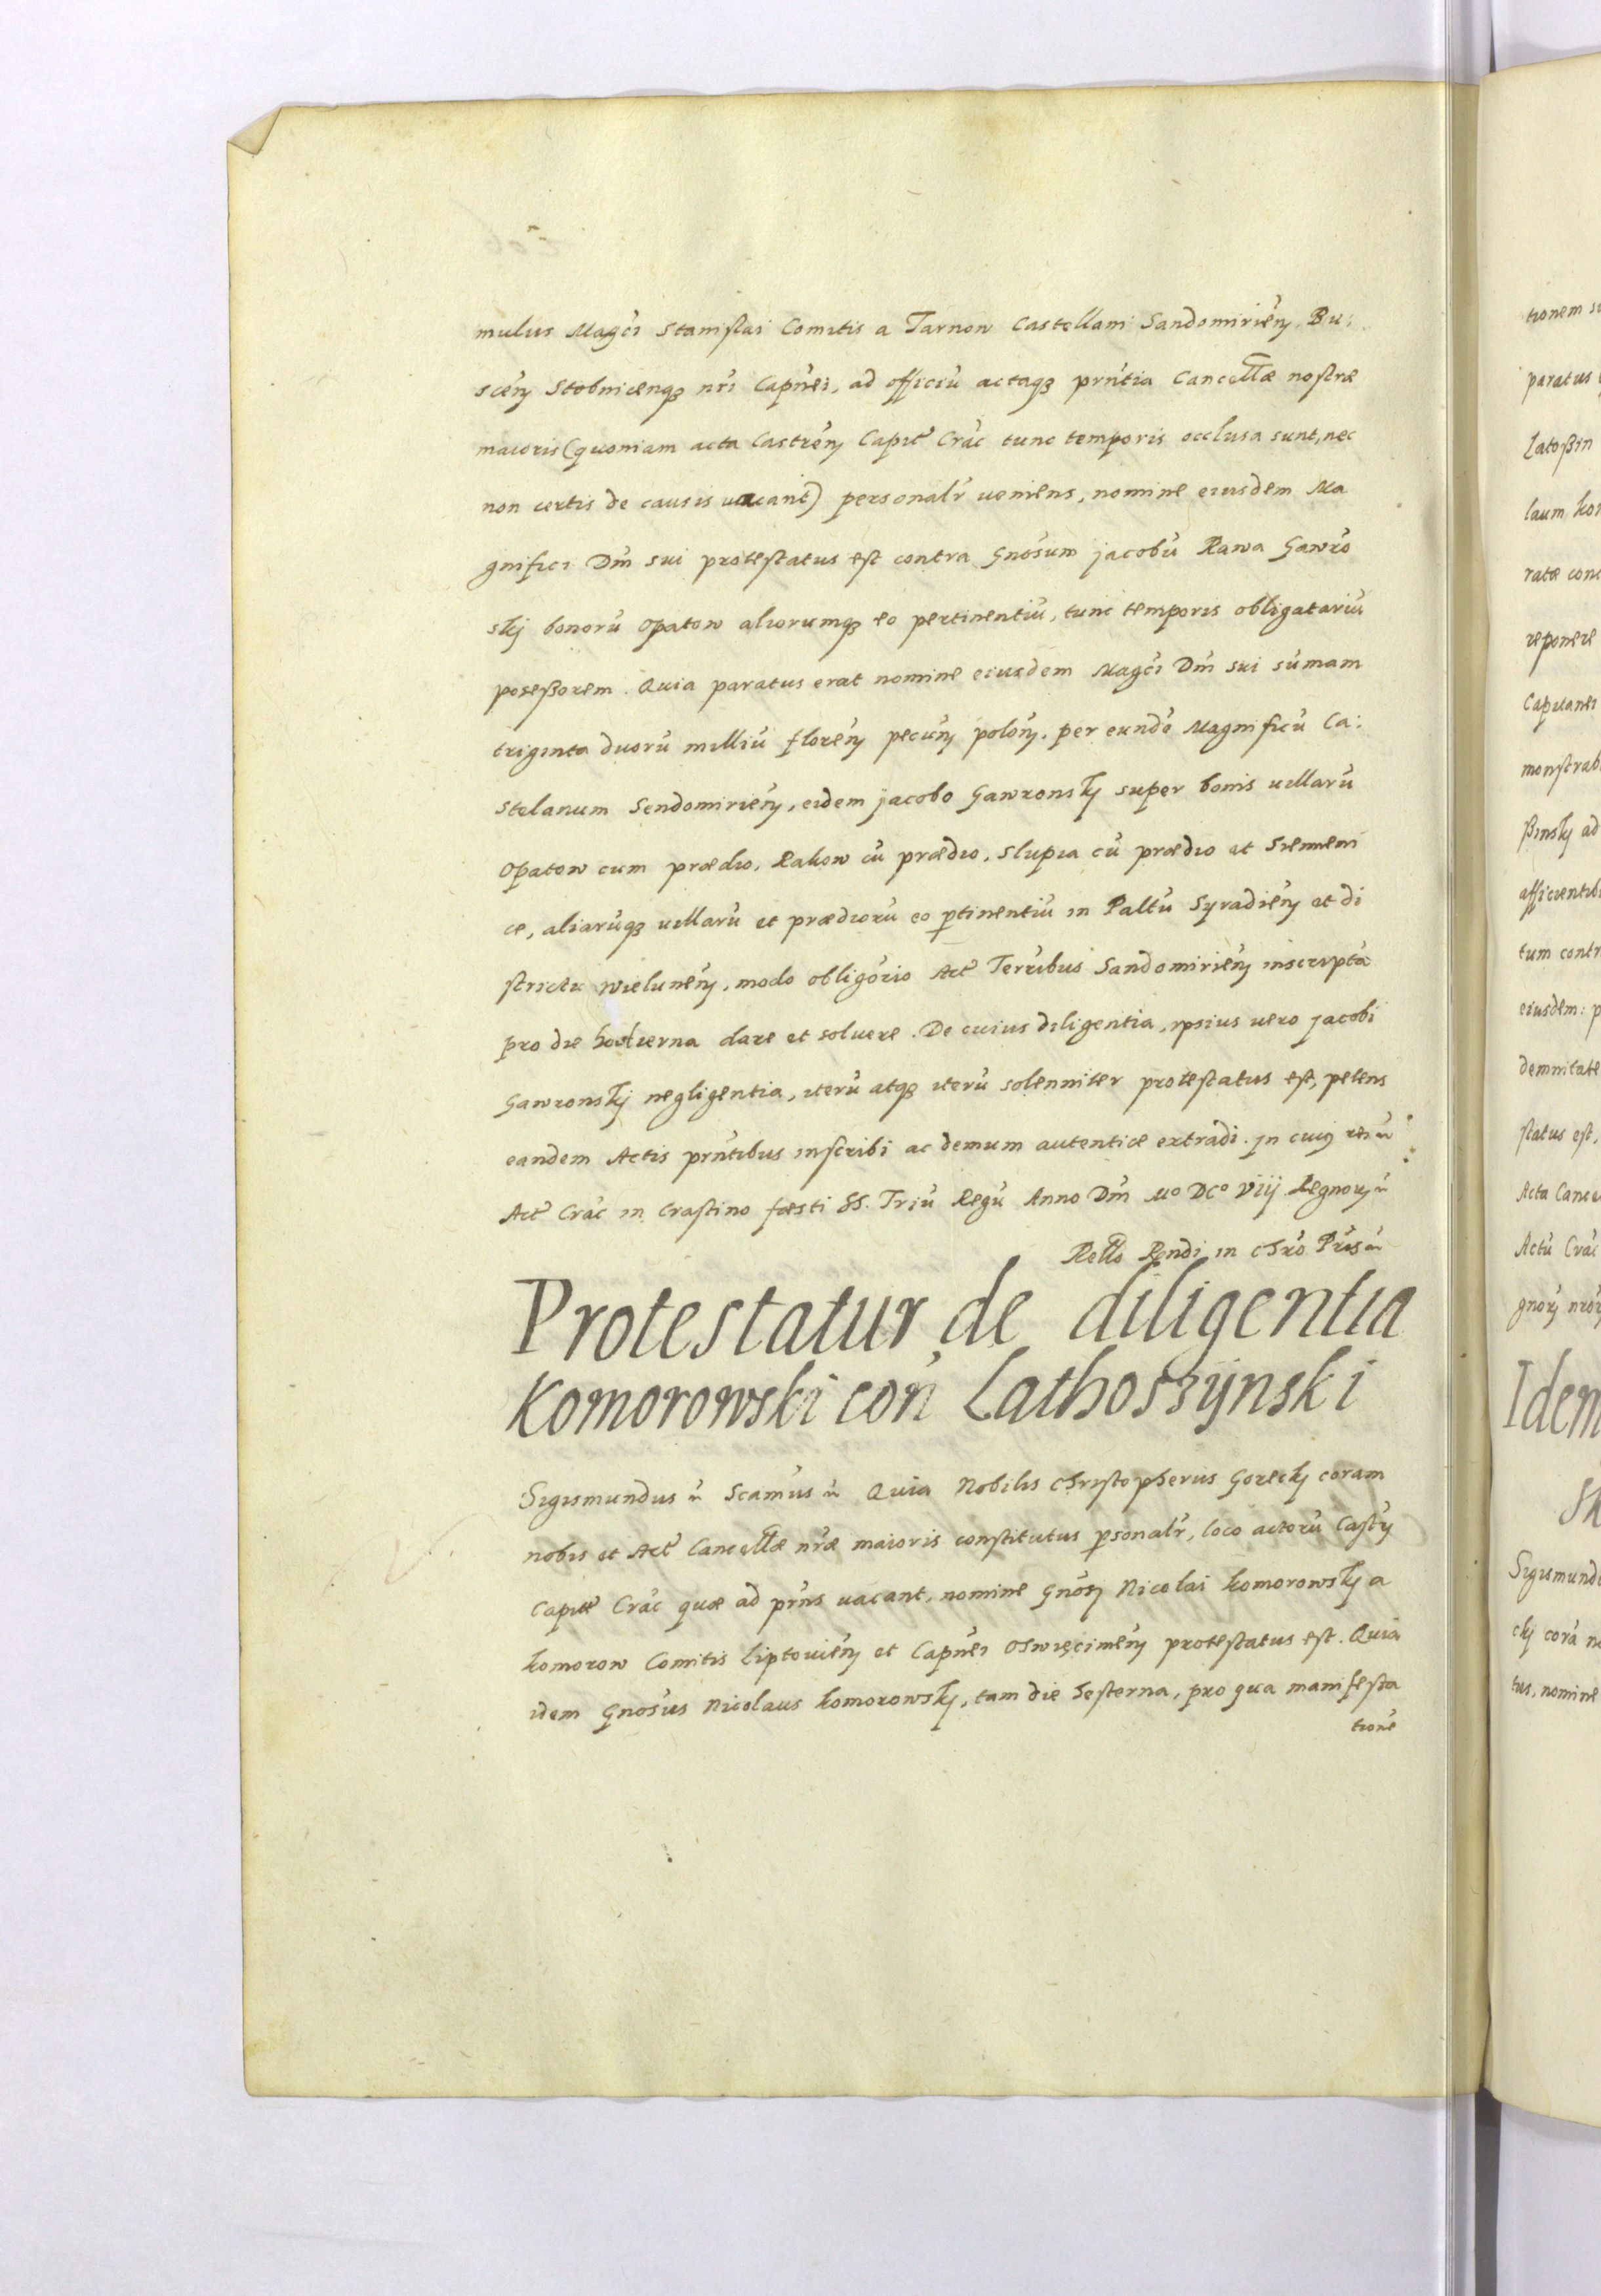 mulus Magci Stanislai Comitis a Tarnow Castellani Sandomirien Bu:
scen Stobnicenq nri Capnei, ad officiu actaq prntia Cancellæ nostræ
maioris (quoniam acta Castren Capit Crac tunc temporis occlusa sunt, nec
non certis de causis vacant) personalr veniens, nomine eiusdem Ma
gnifici Dni sui protestatus est contra Gnosum Jacobu Rawa Gawro
skj bonoru Opatow aliorumq eo pertinentiu, tunc temporis obligatariu
poseßorem. Quia paratus erat nomine eiusdem Magci Dni sui sumam
triginta duoru milliu floren pecun polon. per eunde Magnificu Ca:
stelanum Sendomirien, eidem Jacobo Gawronskj super bonis villaru
Opatow cum prædio, Rakow cu prædio, Slupia cu prædio et Siemieni
ce, aliaruq villaru et prædioru eo ptinentiu in Paltu Syradien et di
strictu Wielunen, modo obligorio Act Terribus Sandomirien inscripta
pro die hodierna dare et solvere. De cuius diligentia, ipsius vero Jacobi
Gawronskj negligentia, iteru atq iteru solenniter protestatus est, petens
eandem Actis prntibus inscribi ac demum autentice extradi. In cuius rei
Act Crac in Crastino fæsti SS. Triu Regu Anno Dni Mo DCo Viij Regnor
Rello Rendi in Chro Pris
Protestatur de diligentia
Komorowski con Lathoszÿnski
Sigismundus Scamus Quia Nobilis Christopherus Goreckj coram
nobis et Act Cancellæ nræ maioris constitutus psonalr, loco actoru Castr
Capit Crac quæ ad prns vacant, nomine Gnosi Nicolai Komorowskj a
Komorow Comitis Liptovien et Capnei Oswięcimen protestatus est. Quia
idem Gnosus Nicolaus Komorowskj, tam die hesterna, pro qua manifesta
tione
tionem
paratus
Latoßin
laum
ratæ
reponere
Capitanei
monstrab
ßinskj ad
afficientib
tum contr
eiusdem: p
demnitate
status est,
Acta Cance
Actu Crac
gnor nror
Idem
Sigismund
ckj cora
tus, nomine